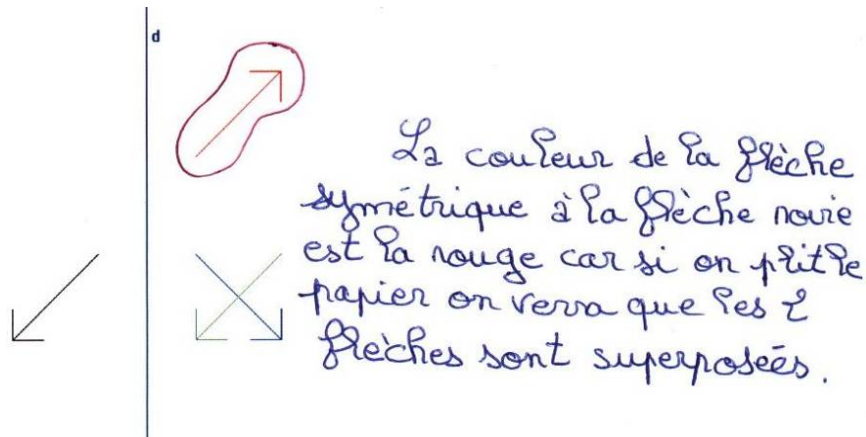 d
La couleur de la flèche
symétrique à la flèche novie
est la rouge car si on plitle
papier on verra que les 2
flèches sont superposeés.